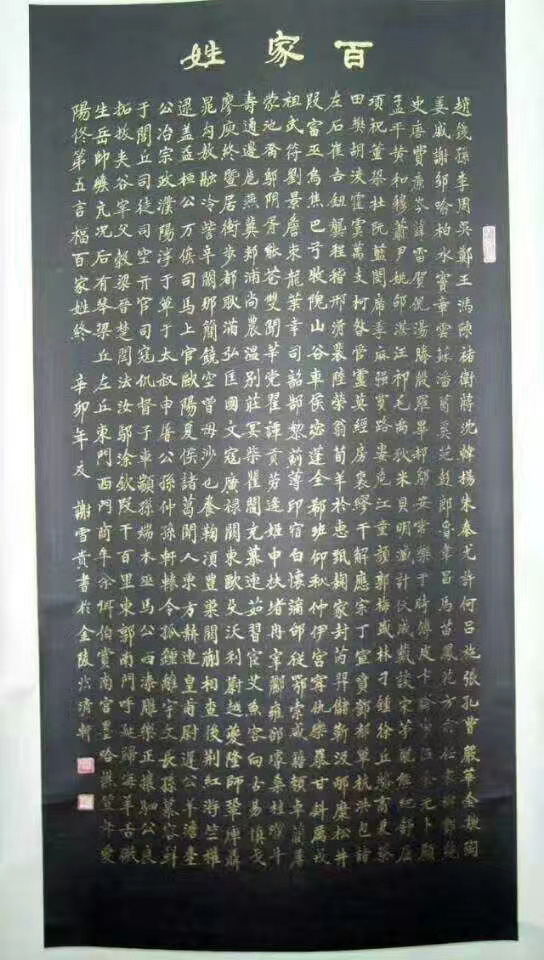 百家姓
趙錢孫李周吳鄭王馮陳褚衛蔣沈韓楊朱秦尤許何呂施張孔曹嚴華金魏陶
姜戚謝鄒喻柏水竇章雲蘇潘葛奚范彭郎魯韋昌馬苗鳳花方俞任袁柳酆鮑
史唐費廉岑薛雷賀倪湯滕殷羅畢郝鄔安常樂于時傅皮卞齊康伍余元卜顧
孟平黃和穆蕭尹姚邵湛汪祁毛禹狄米貝明臧計伏成戴談宋茅龐熊紀舒屈
項祝董梁杜阮藍閔席季麻強賈路婁危江童顏郭梅盛林刁鍾徐丘駱高夏蔡
田樊胡凌霍虞萬支柯昝管盧莫經房裘繆干解應宗丁宣賁鄧郁單杭洪包諸
左石崔吉鈕龔程嵇邢滑裴陸榮翁荀羊於惠甄麴家封芮羿儲靳汲邴糜松井
段富巫烏焦巴弓牧隗山谷車侯宓蓬全郗班仰秋仲伊宮寧仇欒暴甘鈄厲戎
祖武符劉景詹束龍葉幸司韶郜黎薊薄印宿白懷蒲邰從鄂索咸籍賴卓藺屠
蒙池喬陰胥蒼雙聞莘党翟譚貢勞逄姬申扶堵冉宰酈雍郤璩桑桂濮牛
壽通邊扈燕冀郟浦尚農溫別莊晏柴瞿閻充慕連茹習宦艾魚容向古易慎戈
廖庾終暨居衡步都耿滿弘匡國文寇廣祿闕東歐殳沃利蔚越夔隆師鞏厙聶
晁勾敖融冷訾辛闞那簡饒空曾毋沙乜養鞠須豐巢關蒯相查後荊紅游竺權
逯蓋益桓公万俟司馬上官歐陽夏侯諸葛聞人東方赫連皇甫尉遲公羊澹臺
公冶宗政濮陽淳于單于太叔申屠公孫仲孫軒轅令狐鍾離宇文長孫慕容
于閭丘司徒司空亓官司寇仉督子車顓孫端木巫馬公西漆雕樂正壤駟公良
拓拔夾谷宰父穀梁晉楚閆法汝鄢涂欽段干百里東郭南門呼延歸海羊舌微
生岳帥緱亢況后有琴梁丘左丘東門西門商牟佘佴伯賞南宮墨哈譙笪年愛
陽佟第五言福百家姓終 辛卯年夏 謝雪貴書於金陵清軒